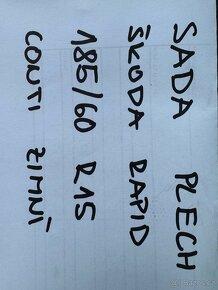 SADA PLECH
ŠKODA RAPID
185/60 R15
CONTI ZIMNÍ